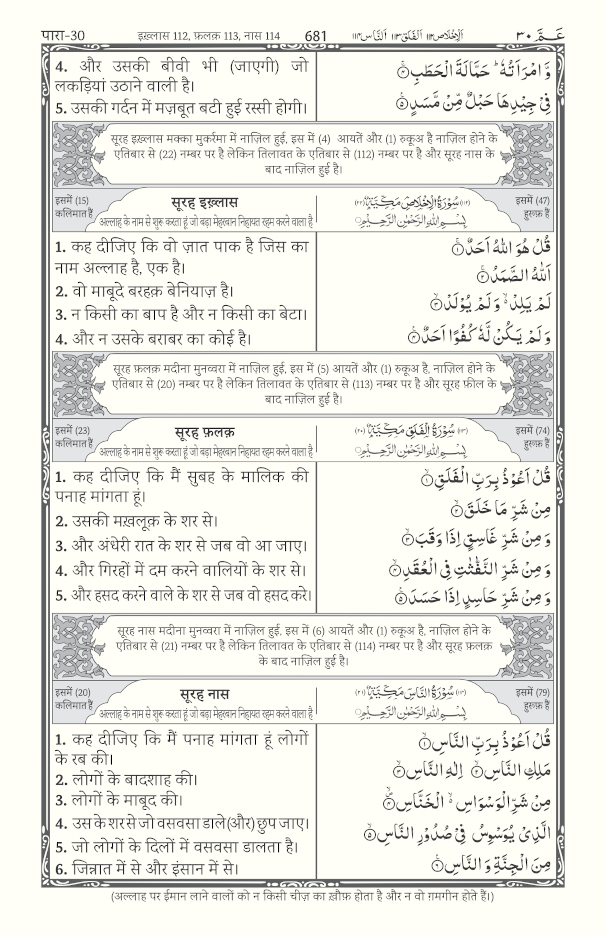 पारा-30
इख़्लास 112, फ़लक़ 113, नास 114
681
اَلْاِخْلَاص١١٢ اَلْفَلَق١١٣ اَلنَّاس١١٤
عَـمَّ ٣٠
4. और उसकी बीवी भी (जाएगी) जो
लकड़ियां उठाने वाली है।
5. उसकी गर्दन में मज़बूत बटी हुई रस्सी होगी।
وَّامْرَاَتُهٗ ؕ حَمَّالَةَ الْحَطَبِ ۚ﴿۴﴾
فِیْ جِیْدِهَا حَبْلٌ مِّنْ مَّسَدٍ ﴿۵﴾
सूरह इख़्लास मक्का मुकर्रमा में नाज़िल हुई, इस में (4) आयतें और (1) रुकूअ है नाज़िल होने के
एतिबार से (22) नम्बर पर है लेकिन तिलावत के एतिबार से (112) नम्बर पर है और सूरह नास के
बाद नाज़िल हुई है।
इसमें (15)
कलिमात हैं
सूरह इख़्लास
अल्लाह के नाम से शुरू करता हूं जो बड़ा मेहरबान निहायत रहम करने वाला है
سُوْرَةُ الْاِخْلَاصِ مَكِّیَّةٌ
بِسْمِ اللهِ الرَّحْمٰنِ الرَّحِیْمِ
इसमें (47)
हुरूफ़ हैं
1. कह दीजिए कि वो ज़ात पाक है जिस का
नाम अल्लाह है, एक है।
2. वो माबूदे बरहक़ बेनियाज़ है।
3. न किसी का बाप है और न किसी का बेटा।
4. और न उसके बराबर का कोई है।
قُلْ هُوَ اللهُ اَحَدٌ ۚ﴿۱﴾
اَللهُ الصَّمَدُ ۚ﴿۲﴾
لَمْ یَلِدْ ۙ۬ وَ لَمْ یُوْلَدْ ۙ﴿۳﴾
وَ لَمْ یَكُنْ لَّهٗ كُفُوًا اَحَدٌ ﴿۴﴾
सूरह फ़लक़ मदीना मुनव्वरा में नाज़िल हुई, इस में (5) आयतें और (1) रुकूअ है, नाज़िल होने के
एतिबार से (20) नम्बर पर है लेकिन तिलावत के एतिबार से (113) नम्बर पर है और सूरह फ़ील के
बाद नाज़िल हुई है।
इसमें (23)
कलिमात हैं
सूरह फ़लक़
अल्लाह के नाम से शुरू करता हूं जो बड़ा मेहरबान निहायत रहम करने वाला है
سُوْرَةُ الْفَلَقِ مَكِّیَّةٌ
بِسْمِ اللهِ الرَّحْمٰنِ الرَّحِیْمِ
इसमें (74)
हुरूफ़ हैं
1. कह दीजिए कि मैं सुबह के मालिक की
पनाह मांगता हूं।
2. उसकी मख़लूक़ के शर से।
3. और अंधेरी रात के शर से जब वो आ जाए।
4. और गिरहों में दम करने वालियों के शर से।
5. और हसद करने वाले के शर से जब वो हसद करे।
قُلْ اَعُوْذُ بِرَبِّ الْفَلَقِ ۙ﴿۱﴾
مِنْ شَرِّ مَا خَلَقَ ۙ﴿۲﴾
وَ مِنْ شَرِّ غَاسِقٍ اِذَا وَقَبَ ۙ﴿۳﴾
وَ مِنْ شَرِّ النَّفّٰثٰتِ فِی الْعُقَدِ ۙ﴿۴﴾
وَ مِنْ شَرِّ حَاسِدٍ اِذَا حَسَدَ ﴿۵﴾
सूरह नास मदीना मुनव्वरा में नाज़िल हुई, इस में (6) आयतें और (1) रुकूअ है, नाज़िल होने के
एतिबार से (21) नम्बर पर है लेकिन तिलावत के एतिबार से (114) नम्बर पर है और सूरह फ़लक़
के बाद नाज़िल हुई है।
इसमें (20)
कलिमात हैं
सूरह नास
अल्लाह के नाम से शुरू करता हूं जो बड़ा मेहरबान निहायत रहम करने वाला है
سُوْرَةُ النَّاسِ مَكِّیَّةٌ
بِسْمِ اللهِ الرَّحْمٰنِ الرَّحِیْمِ
इसमें (79)
हुरूफ़ हैं
1. कह दीजिए कि मैं पनाह मांगता हूं लोगों
के रब की।
2. लोगों के बादशाह की।
3. लोगों के माबूद की।
4. उस के शर से जो वसवसा डाले(और) छुप जाए।
5. जो लोगों के दिलों में वसवसा डालता है।
6. जिन्नात में से और इंसान में से।
قُلْ اَعُوْذُ بِرَبِّ النَّاسِ ۙ﴿۱﴾
مَلِكِ النَّاسِ ۙ﴿۲﴾ اِلٰهِ النَّاسِ ۙ﴿۳﴾
مِنْ شَرِّ الْوَسْوَاسِ ۙ۬ الْخَنَّاسِ ۪ۙ﴿۴﴾
الَّذِیْ یُوَسْوِسُ فِیْ صُدُوْرِ النَّاسِ ۙ﴿۵﴾
مِنَ الْجِنَّةِ وَ النَّاسِ ﴿۶﴾
(अल्लाह पर ईमान लाने वालों को न किसी चीज़ का ख़ौफ़ होता है और न वो ग़मगीन होते हैं।)